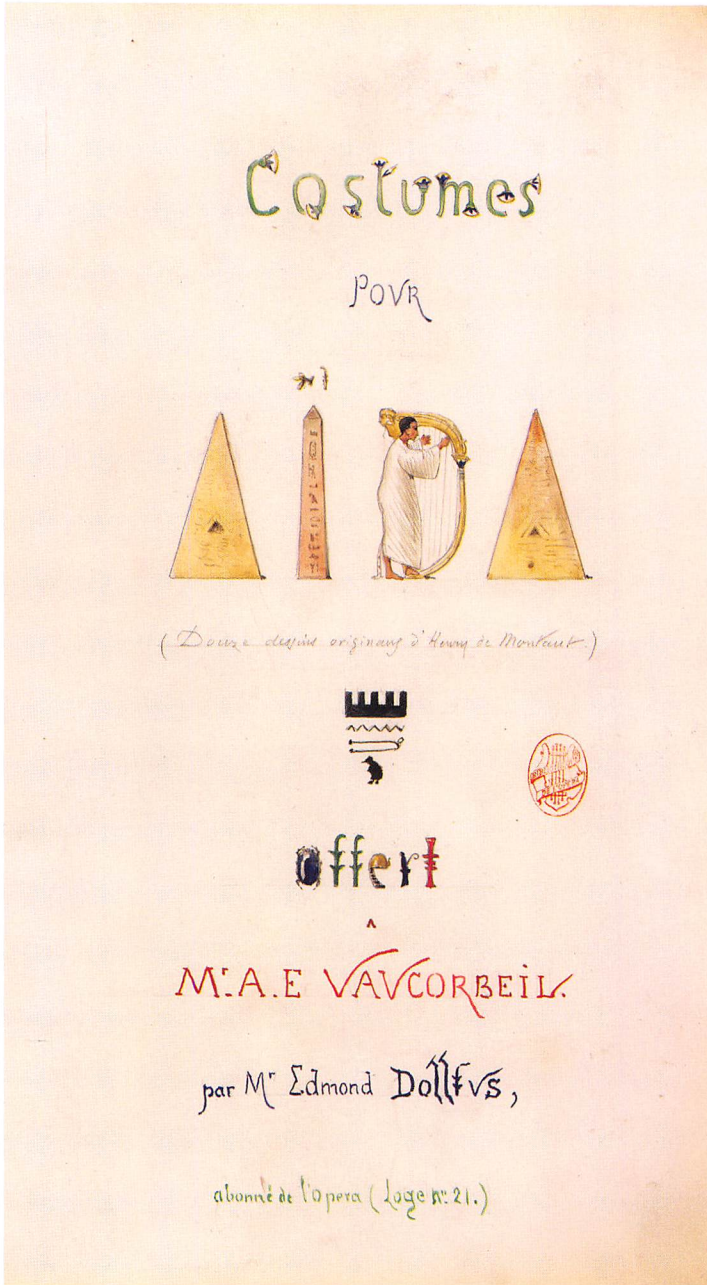 Costumes
POVR
AÏDA
(Douze dessins originaux d'Henry de Montaut.)
offert
A
Mr. A. E VAVCORBEIL.
par Mr Edmond Dollfvs,
abonné de l'opera (Loge no. 21.)